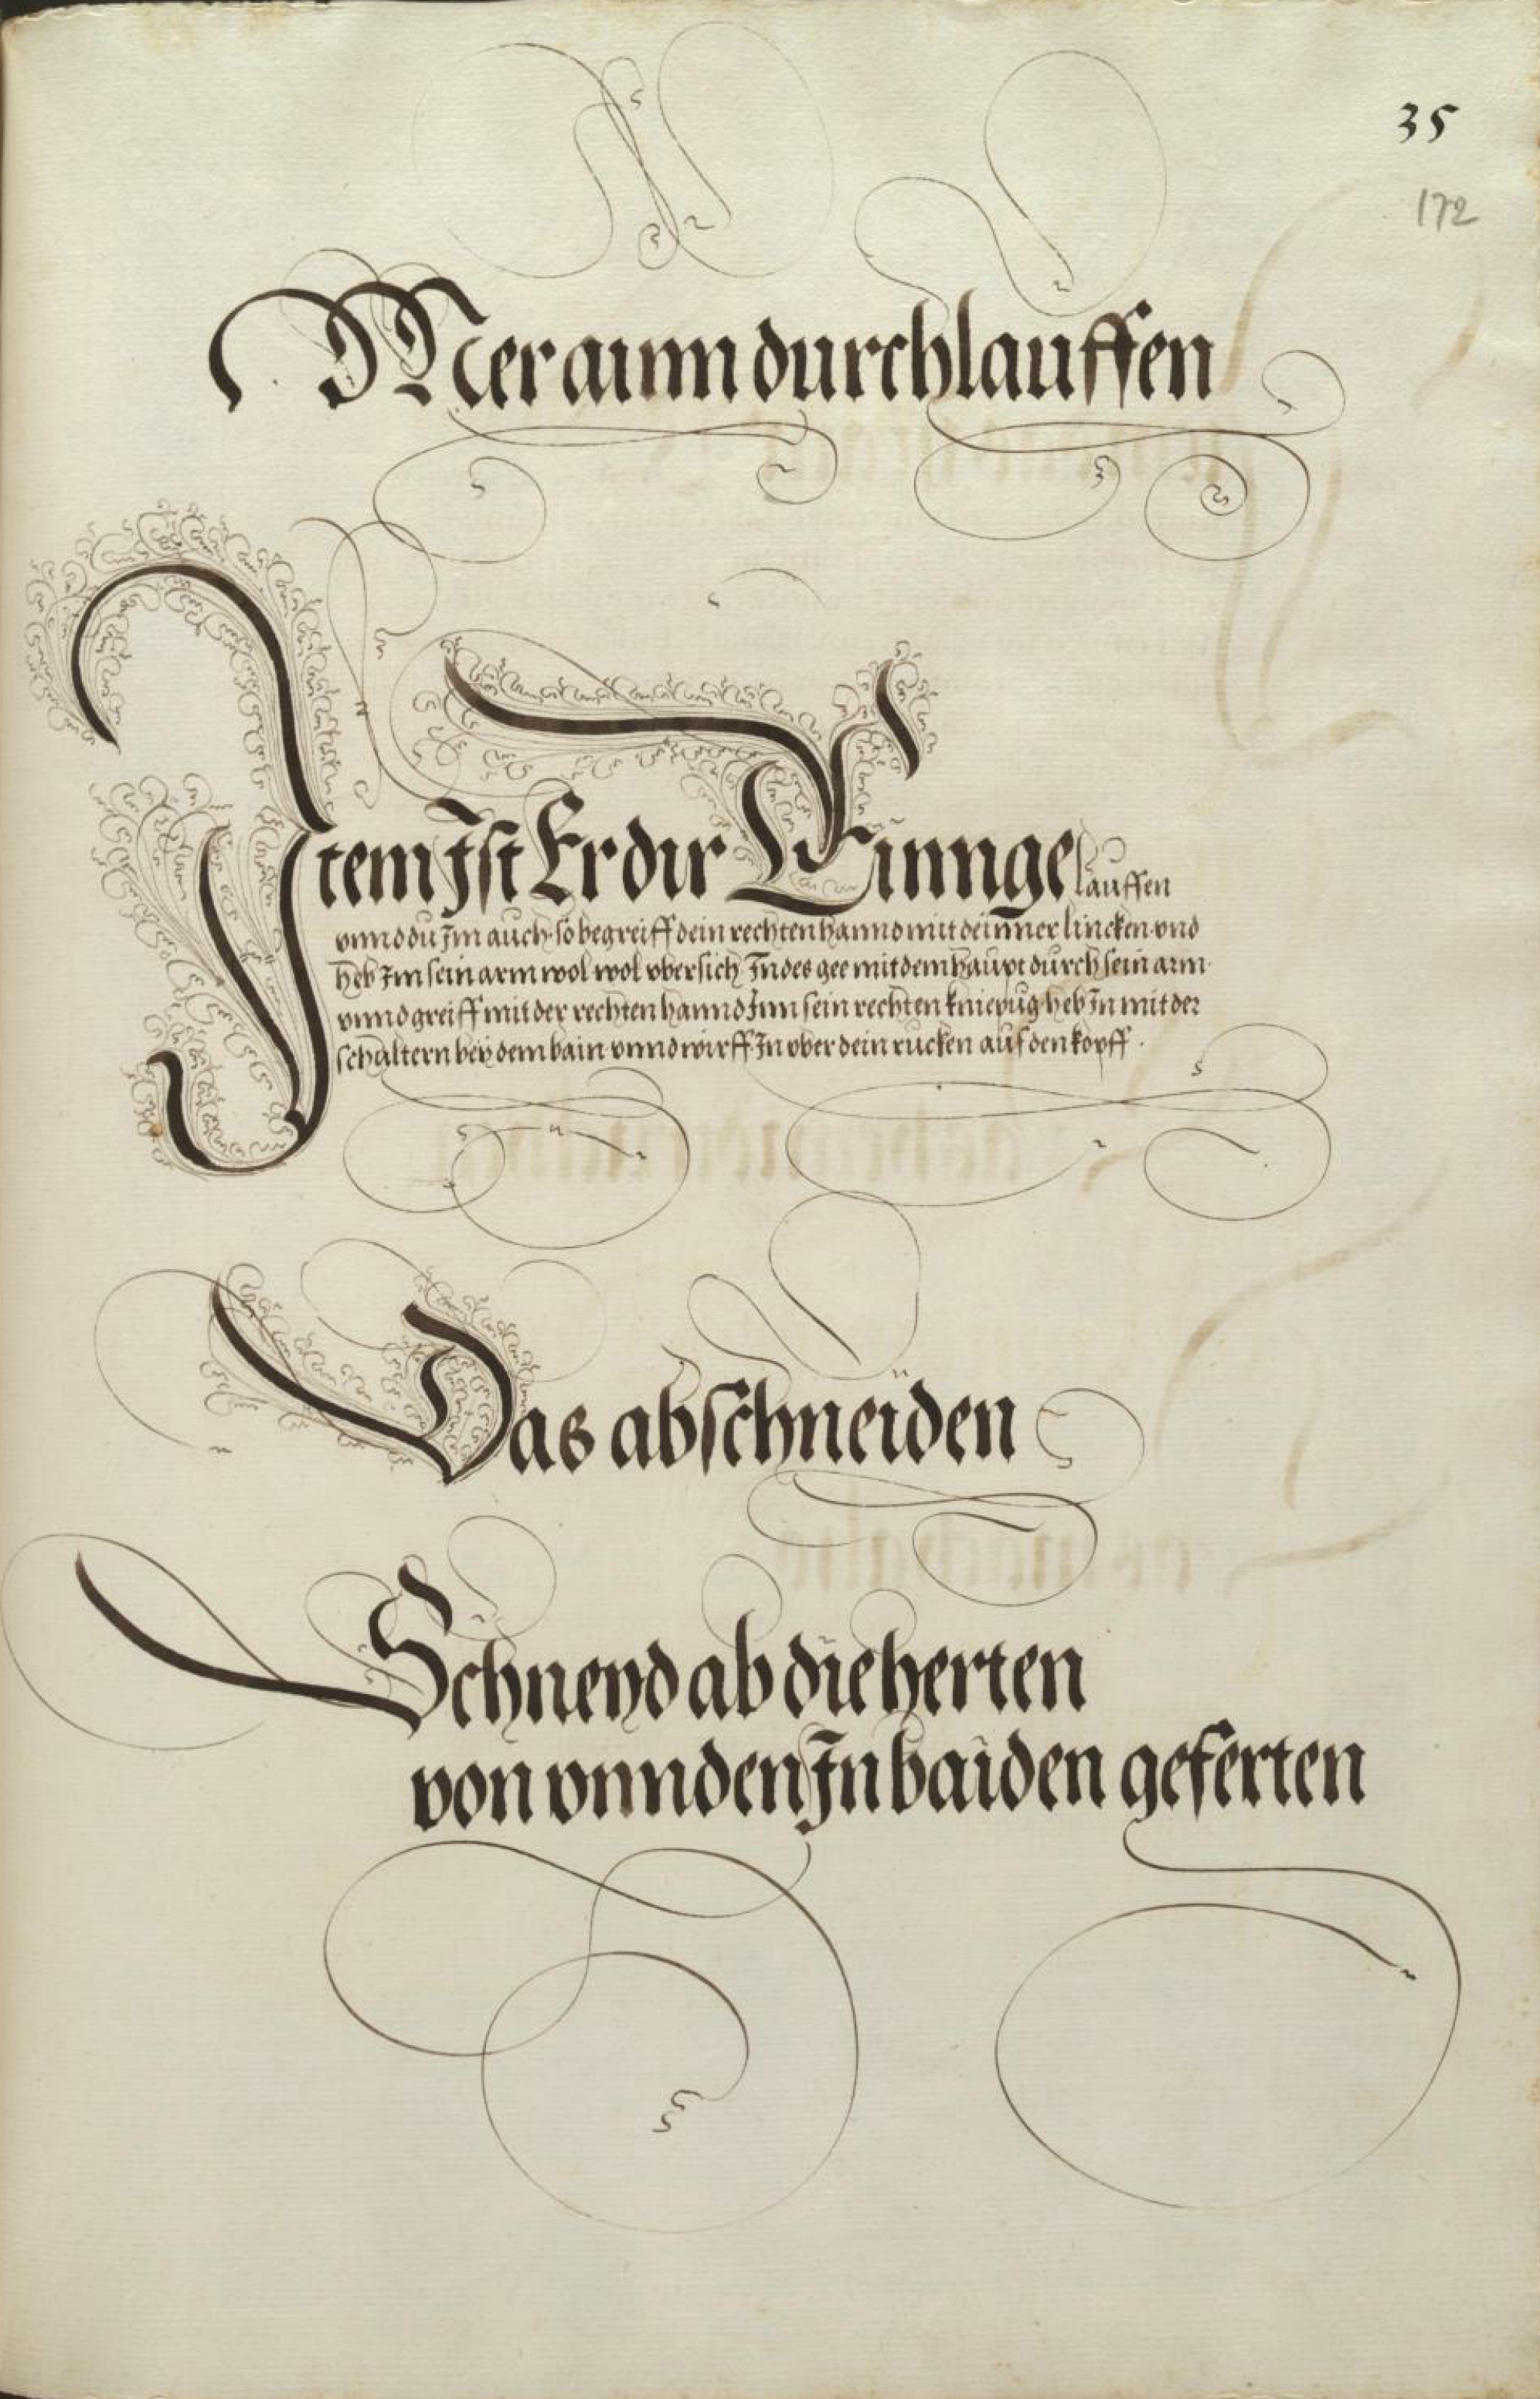 35
172
Mer ainn durchlauffen
Item Ist Er dir Einngelauffen
vnnd du Im auch so begreiff dein rechten hannd mit deinner lincken vnd
heb Im sein arm wol wol vbersich Indes gee mit dem haupt durch sein arm
vnnd greiff mit der rechten hannd Inn sein rechten kniepug heb In mit der
schaltern bey dem bain vnnd wirff In vber dein rucken auf den kopff.
Das abschneiden
Schneyd ab die herten
von vnnden In baiden geferten